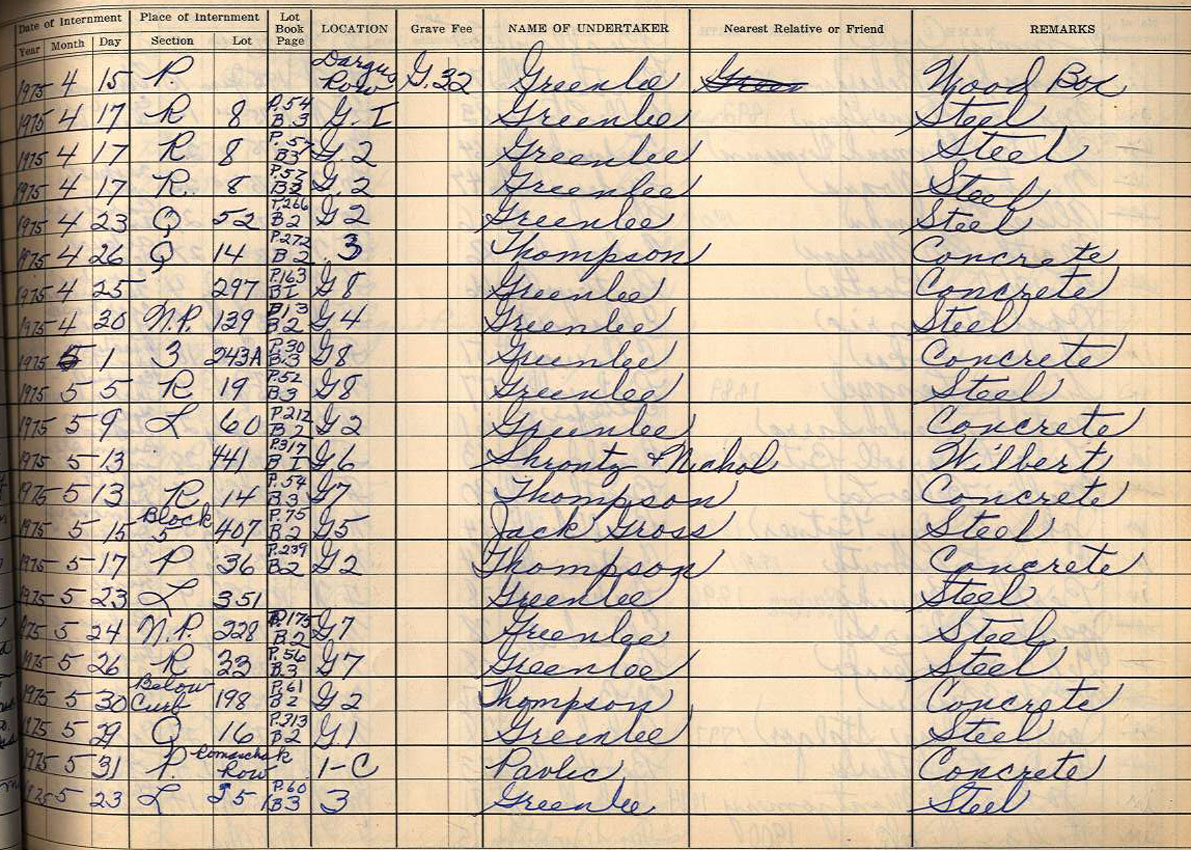 Date of Internment Place of Internment Lot Book Page LOCATION Grave Fee NAME OF UNDERTAKER Nearest Relative or Friend REMARKS
Year Month Day Section Lot
1975 4 15 P. Dargus Row G.32 Greenlee Wood Box
1975 4 17 R 8 P.54 B.3 G.I Greenlee Steel
1975 4 17 R 8 P.57 B3 G.2 Greenlee Steel
1975 4 17 R. 8 P.52 B3 G.2 Greenlee Steel
1975 4 23 Q 52 P.266 B2 G2 Greenlee Steel
1975 4 26 Q 14 P.272 B2 3 Thompson Concrete
1975 4 25 297 P.163 BI G8 Greenlee Concrete
1975 4 30 N.P. 139 P13 B.2 G4 Greenlee Steel
1975 5 1 3 243A P.30 B.3 G8 Greenlee Concrete
1975 5 5 R 19 P.52 B3 G8 Greenlee Steel
1975 5 9 L 60 P.212 B2 G2 Greenlee Concrete
1975 5 13 441 P.317 B.I G6 Shrontz & Nichol Wilbert
1975 5 13 R 14 P.54 B.3 G7 Thompson Concrete
1975 5 15 Block 5 407 P.75 B2 G5 Jack Gross Steel
1975 5 17 P 36 P.239 B2 G2 Thompson Concrete
1975 5 23 L 351 Greenlee Steel
1975 5 24 N.P. 228 P.175 B2 G7 Greenlee Steel
1975 5 26 R 23 P.56 B.3 G7 Greenlee Steel
1975 5 30 Below Curb 198 P.61 B2 G2 Thompson Concrete
1975 5 29 Q 16 P.313 B2 G.1 Greenlee Steel
1975 5 31 P. Romaschak Row 1-C Pavlic Concrete
1975 5 23 L P.60 B3 3 Greenlee Steel